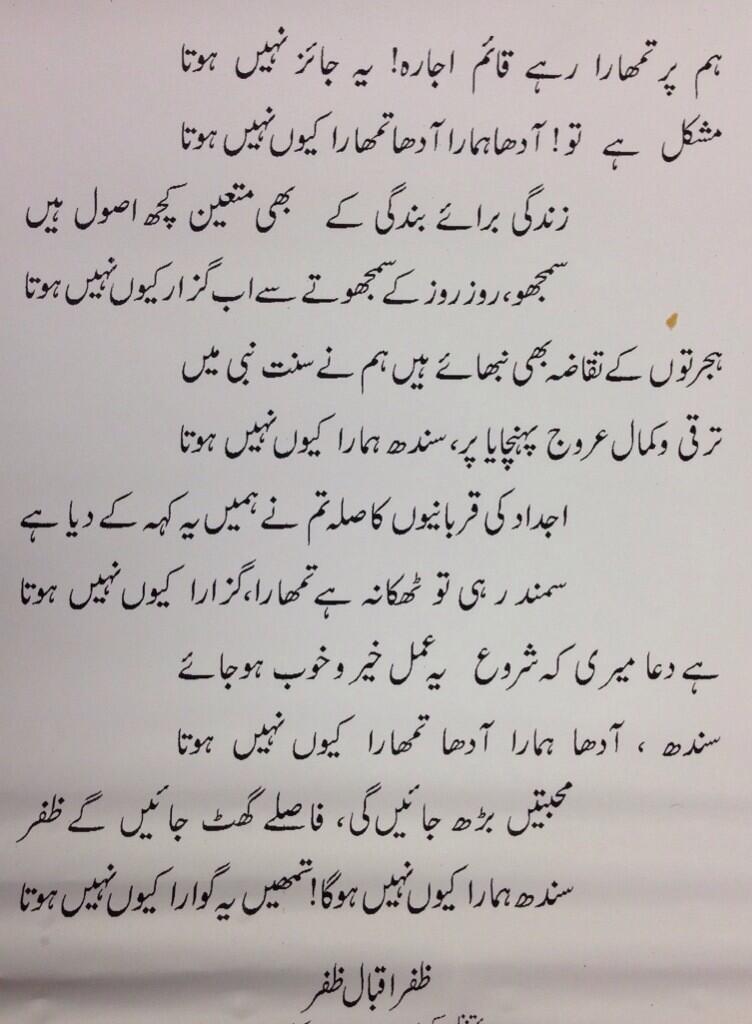 ہم پر تمھارا رہے قائم اجارہ! یہ جائز نہیں ہوتا
مشکل ہے تو! آدھا ہمارا آدھا تمھارا کیوں نہیں ہوتا
زندگی برائے بندگی کے بھی متعین کچھ اصول ہیں
سمجھو، روز روز کے سمجھوتے سے اب گزار کیوں نہیں ہوتا
ہجرتوں کے تقاضہ بھی نبھائے ہیں ہم نے سنت نبی میں
ترقی و کمال عروج پہنچایا پر، سندھ ہمارا کیوں نہیں ہوتا
اجداد کی قربانیوں کا صلہ تم نے ہمیں یہ کہہ کے دیا ہے
سمندر ہی تو ٹھکانہ ہے تمھارا، گزارا کیوں نہیں ہوتا
ہے دعا میری کہ شروع یہ عمل خیر و خوب ہو جائے
سندھ ، آدھا ہمارا آدھا تمھارا کیوں نہیں ہوتا
محبتیں بڑھ جائیں گی، فاصلے گھٹ جائیں گے ظفر
سندھ ہمارا کیوں نہیں ہوگا! تمھیں یہ گوارا کیوں نہیں ہوتا
ظفر اقبال ظفر